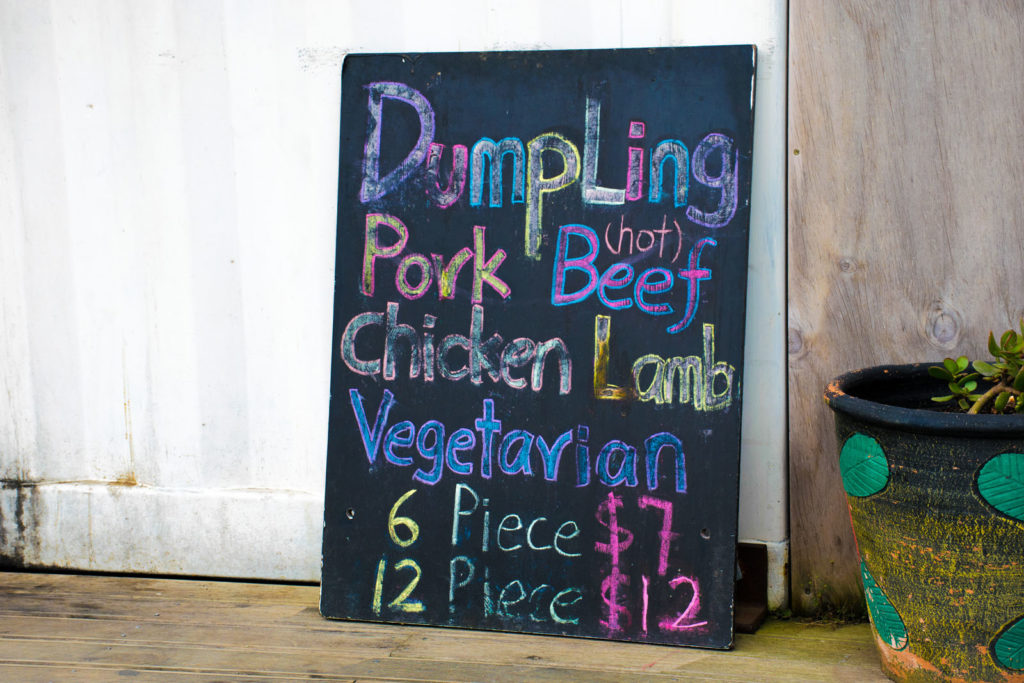 DumpLing
Pork (hot) Beef
Chicken Lamb
Vegetarian
6 Piece $7
12 Piece $12